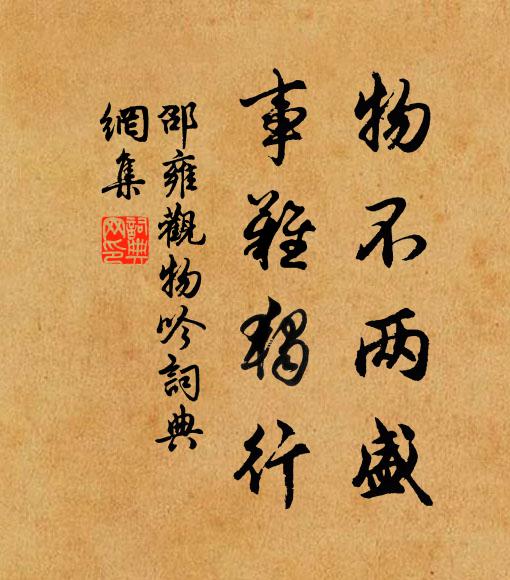 物不两盛
事難獨行
邵雍觀物吟詞典
網集
詞典
网印